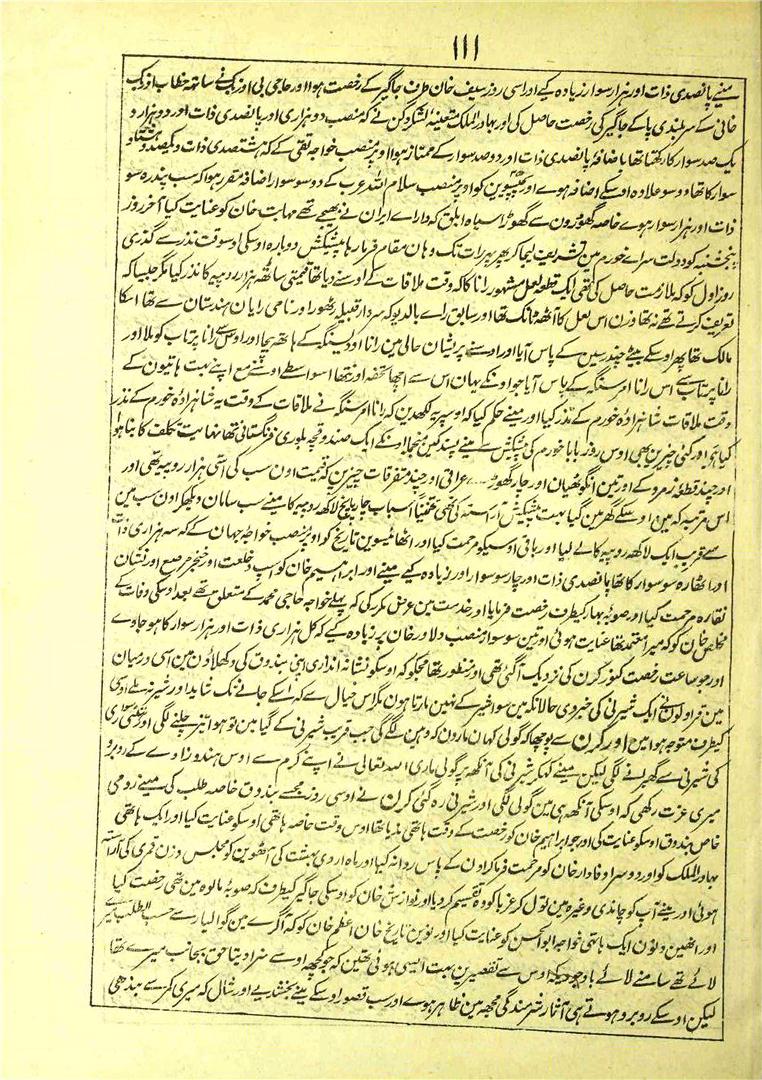 ۱۱۱
مینے پانصدی ذات اور ہزار سوار زیادہ کیے اور اسی روز سیف خان طرف جاگیر کے رخصت ہوا اور حاجی بی اوزبک نے ساتھ خطاب اوزبک
خانی کے سربلندی پا کے جاگیر کی رخصت حاصل کی اور بہادرالملک متعینہ لشکر دکن نے کہ منصب دو ہزاری اور پانصدی ذات اور دو ہزار و
یک صد سوار کا رکھتا تھا باضافہ پانصدی ذات اور دو صد سوار کے ممتاز ہوا اوپر منصب خواجہ تقی کے کہ ہشتصدی ذات و یکصد و ہشتاد
سوار کا تھا دو سو علاوہ اوسکے اضافہ ہوے اور پچیسوین کو اوپر منصب سلام اللہ عرب کے دو سو سوار اضافہ مقرر ہوا کہ سب پندرہ سو
ذات اور ہزار سوار ہوے خاصہ گھوڑون سے گھوڑا سیاہ ابلق کہ داراے ایران نے بھیجے تھے مہابت خان کو عنایت کیا آخر روز
پنجشنبہ کو دولت سراے خورم مین تشریف لیجا کر پھر پہر رات تک وہان مقام فرما رہا پیشکش دوبارہ اوسکی اوسوقت نذر سے گذری
روز اول کو کہ ملازمت حاصل کی تھی ایک قطعہ لعل مشہور رانا کا کہ وقت ملاقات کے اوسنے دیا تھا قیمتی ساٹھہ ہزار روپیہ کا نذر کیا مگر جیسا کہ
تعریف کرتے تھے نہ تھا وزن اس لعل کا آٹھہ ٹانک تھا اور سابق راے بالدیو کہ سردار قبیلہ رٹھور اور نامی رایان ہندستان سے تھا اسکا
مالک تھا پھر اوسکے بیٹے چندر سین کے پاس آیا اور اوسنے پریشان حالی مین رانا اودے سنگہ کے ہاتھہ بیچا اور اوس سے رانا پرتاب کو ملا اور
رانا پرتاب سے اس رانا امر سنگہ کے پاس آیا جو اونکے یہان اس سے اچھا تحفہ اور نتھا اسواسطے اوسنے مع اپنے بہت ہاتیون کے
وقت ملاقات شاہزادہ خورم کے نذر کیا اور مینے حکم کیا کہ اوسپر یہ لکھدین کہ رانا امر سنگہ نے ملاقات کے وقت یہ شاہزادہ خورم کے نذر
کیا ہے اور کئی چیزین بھی اوس روز بابا خورم کی پیشکش سے مینے پسند کین منجملہ اونکے ایک صندوقچہ بلوری فرنگستانی تھا نہایت تکلف کا بنا ہوا
اور چند قطعہ زمرد کے اور تین انگوٹھیان اور چار گھوڑے عراقی اور چند متفرقات چیزین کہ قیمت اون سب کی اسّی ہزار روپیہ تھی اور
اس مرتبہ کہ مین اوسکے گھر مین گیا بہت پیشکش آراستہ کی تھی تخمیناً اسباب چار پانچ لاکھہ روپیہ کا مینے سب سامان دیکھا اون سب مین
سے قریب ایک لاکھہ روپیہ کا لے لیا اور باقی اوسیکو مرحمت کیا اور اٹھائیسوین تاریخ کو اوپر منصب خواجہ جہان کے کہ سہ ہزاری ذات
اور اٹھارہ سو سوار کا تھا پانصدی ذات اور چار سو سوار اور زیادہ کیے مینے اور ابراہیم خان کو اسپ و خلعت اور خنجر مرصع اور نشان
نقارہ مرحمت کیا اور صوبہ بہار کیطرف رخصت فرمایا اور خدمت مین عرض مکرر کی کہ پہلے خواجہ حاجی محمد کے متعلق تھے بعد اوسکی وفات کے
مخلص خان کو کہ میرا معتمد تھا عنایت ہوئی اور تین سو سوار منصب دلاور خان پر زیادہ کیے کہ کل ہزاری ذات اور ہزار سوار کا ہو جاوے
اور جو ساعت رخصت کنور کرن کی نزدیک آ گئی تھی اور منظور تھا مجکو کہ اوسکو نشانہ اندازی اپنی بندوق کی دکھلاؤن مین اسی درمیان
مین قراولون نے ایک شیرنی کی خبر دی حالانکہ مین سوا شیر کے نہین مارتا ہون مگر اس خیال سے کہ اسکے جانے تک شاید اور شیر نہ ملے اوسی
کیطرف متوجہ ہوا مین اور کرن سے پوچھا کہ گولی کہان مارون کہ وہین لگے جب قریب شیرنی کے گیا مین تو ہوا تیز چلنے لگی اور ہتھنی سواری
کی شیرنی سے گھبرانے لگی لیکن مینے کہکر شیرنی کی آنکھہ پر گولی ماری اللہ تعالی نے اپنے کرم سے اوس ہندو زادے کے روبرو
میری عزت رکھی کہ اوسکی آنکھہ ہی مین گولی لگی اور شیرنی رہ گئی کرن نے اوسی روز مجسے بندوق خاصہ طلب کی مینے رومی
خاص بندوق اوسکو عنایت کی اور جو ابراہیم خان کو رخصت کے وقت ہاتھی ندیا تھا اوس وقت خاصہ ہاتھی اوسکو عنایت کیا اور ایک ہاتھی
بہادرالملک کو اور دوسرا وفادار خان کو مرحمت فرما کر اون کے پاس روانہ کیا اور ماہ اردی بہشت کی آٹھوین کو مجلس وزن قمری کی آراستہ
ہوئی اور مینے آپ کو چاندی وغیرہ مین تول کر غربا کو وہ تقسیم کر دیا اور نوازش خان کو اوسکی جاگیر کیطرف کہ صوبہ مالوہ مین تھی رخصت کیا
اور انھین دنون ایک ہاتھی خواجہ ابوالحسن کو عنایت کیا اور نوین تاریخ خان اعظم خان کو کہ آگرے مین گوالیار سے حسب الطلب میرے
لائے تھے سامنے لائے باوجودیکہ اوس سے تقصیرین بہت ایسی ہوئی تھین کہ جو کچھہ اوسے سزا دیتا حق بجانب میرے تھا
لیکن اوسکے روبرو ہوتے ہی آثار شرمندگی مجھہ مین ظاہر ہوے اور سب قصور اوسکے مینے بخشدیے اور شال کہ میری کمر سے بندھی